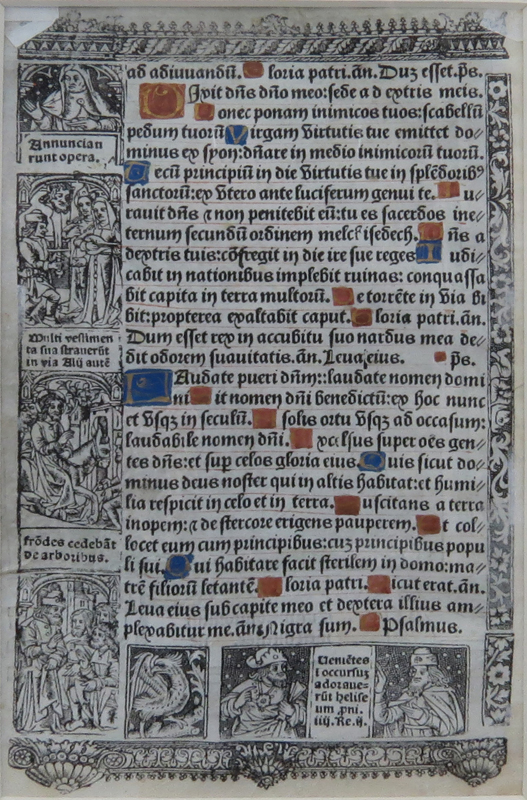 ad adiuuandū. loria patri. ān. Duz esset. p̄s.
Ixit dn̄s dn̄o meo: sede a d extris meis.
onec ponam inimicos tuos: scabellū
pedum tuorū Virgam Virtutis tue emittet do⸗
minus ex syon: dn̄are in medio inimicorū tuorū.
ecū principiū in die Virtutis tue in splēdoribꝰ
sanctorū: ex Vtero ante luciferum genui te. u⸗
rauit dn̄s ⁊ non penitebit eū: tu es sacerdos ine⸗
ternum secundū ordinem melchisedech. n̄s a
dextris tuis: cōfregit in die ire sue reges udi⸗
cabit in nationibus implebit ruinas: conquassa
bit capita in terra multorū. e torrēte in Via bi
bit: propterea exaltabit caput. loria patri. ān.
Dum esset rex in accubitu suo nardus mea de⸗
dit odorem suauitatis. ān. Leua eius. p̄s.
Audate pueri dn̄m:: laudate nomen domi
ni it nomen dn̄i benedictū: ex hoc nunc
et Vsqꝫ in seculū. solis ortu Vsqꝫ ad occasum:
laudabile nomen dn̄i. xcelsus super oēs gen⸗
tes dn̄s: et sup celos gloria eius. Quis sicut do⸗
minus deus noster qui in altis habitat: et humi⸗
lia respicit in celo et in terra. uscitans a terra
inopem: ⁊ de stercore erigens pauperem. t col⸗
locet eum cum principibus: cuz principibus popu
li sui. Qui habitare facit sterilem in domo: ma⸗
trē filiorū letantē. loria patri. icut erat. ān.
Leua eius sub capite meo et dextera illius am⸗
plexabitur me. ān. Nigra sum. Psalmus.
Annuncian
runt opera.
Multi vestimen
ta sua strauerūt
in via Alij autē
frōdes cedebāt
de arboribus.
Veniētes
i occursuz
adoraue⸗
rūt helise
um pni.
iiij. Re. ij.